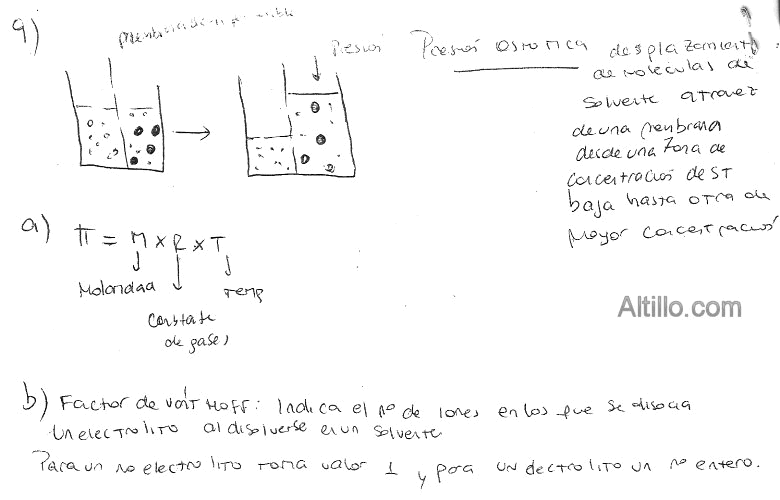 9)
Presión
Presión osmotica desplazamiento
de moleculas de
solvente atravez
de una menbrana
desde una zona de
concentración de ST
baja hasta otra de
mayor concentración
a) π = M x R x T
Molaridad
Temp
Constante
de gases
Altillo.com
b) Factor de van't Hoff: Indica el nº de iones en los que se disocia
un electrolito al disolverse en un solvente
Para un no electrolito toma valor 1 y para un electrolito un nº entero.